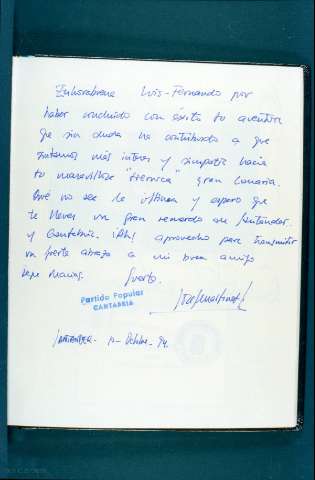 Enhorabuena Luis-Fernando por
haber concluido con éxito tu aventura
que sin duda ha contribuido a que
sintamos más interes y simpatía hacia
tu maravillosa "tierruca" gran canaria.
Qué no sea la última y espero que
te lleves un gran recuerdo de Santander
y Cantabria. ¡Ah! aprovecho para transmitir
un fuerte abrazo a mi buen amigo
Pepe Macías. Suerte.
Partido Popular
CANTABRIA
SANTANDER. Octubre. 94.